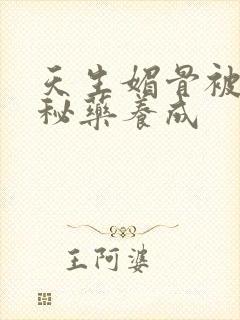 天生媚骨被
秘藥養成
王阿婆